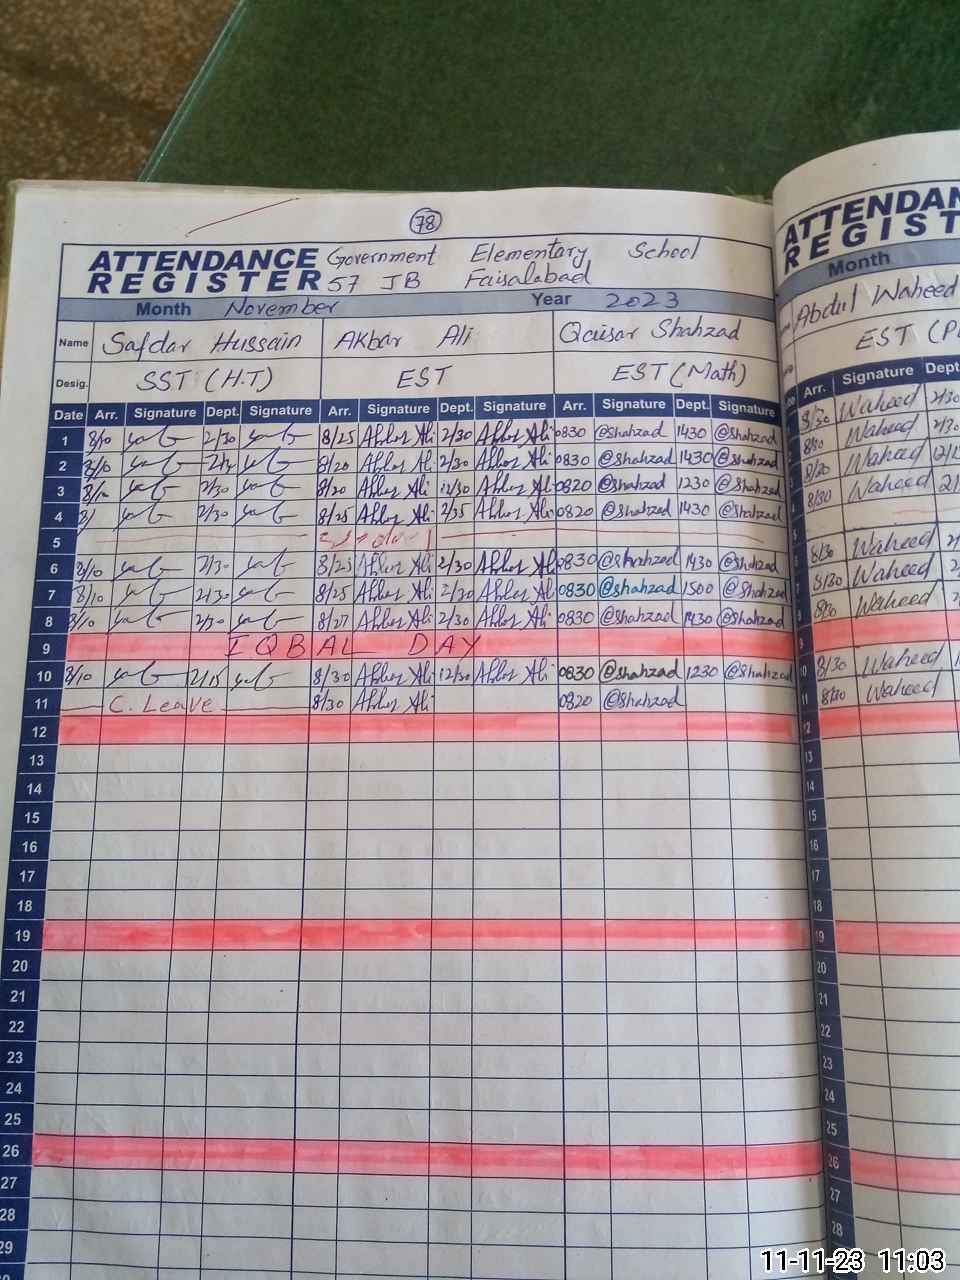 78
ATTENDANCE Government Elementary School
REGISTER 57 JB Faisalabad
Month November Year 2023
Name Safdar Hussain Akbar Ali Qaisar Shahzad
Desig. SST (H.T) EST EST (Math)
Date Arr. Signature Dept. Signature Arr. Signature Dept. Signature Arr. Signature Dept. Signature
1 8/10 2/30 8/25 Akbar Ali 2/30 Akbar Ali 0830 @Shahzad 1430 @Shahzad
2 8/10 8/20 Akbar Ali 2/30 Akbar Ali 0830 @Shahzad 1430 @Shahzad
3 8/10 2/30 8/20 Akbar Ali 12/30 Akbar Ali 0820 @Shahzad 1230 @Shahzad
4 2/30 8/25 Akbar Ali 2/35 Akbar Ali 0820 @Shahzad 1430 @Shahzad
5
6 8/10 2/30 8/25 Akbar Ali 2/30 Akbar Ali 0830 @Shahzad 1430 @Shahzad
7 8/10 2/30 8/25 Akbar Ali 2/30 Akbar Ali 0830 @Shahzad 1500 @Shahzad
8 8/10 2/30 8/27 Akbar Ali 2/30 Akbar Ali 0830 @Shahzad 1430 @Shahzad
9 IQBAL DAY
10 8/10 2/15 8/30 Akbar Ali 12/30 Akbar Ali 0830 @Shahzad 1230 @Shahzad
11 C. Leave 8/30 Akbar Ali 0820 @Shahzad
12
13
14
15
16
17
18
19
20
21
22
23
24
25
26
27
28
29
ATTENDAN
REGIST
Month
Abdul Waheed
EST (P
Arr. Signature Dept
8/30 Waheed 2/30
8/30 Waheed 2/3
8/20 Waheed 12/1
8/30 Waheed 2/
8/30 Waheed
8/30 Waheed
8/30 Waheed
9
10 8/30 Waheed
11 8/30 Waheed
12
13
14
15
16
17
18
19
20
21
22
23
24
25
26
27
28
11-11-23 11:03